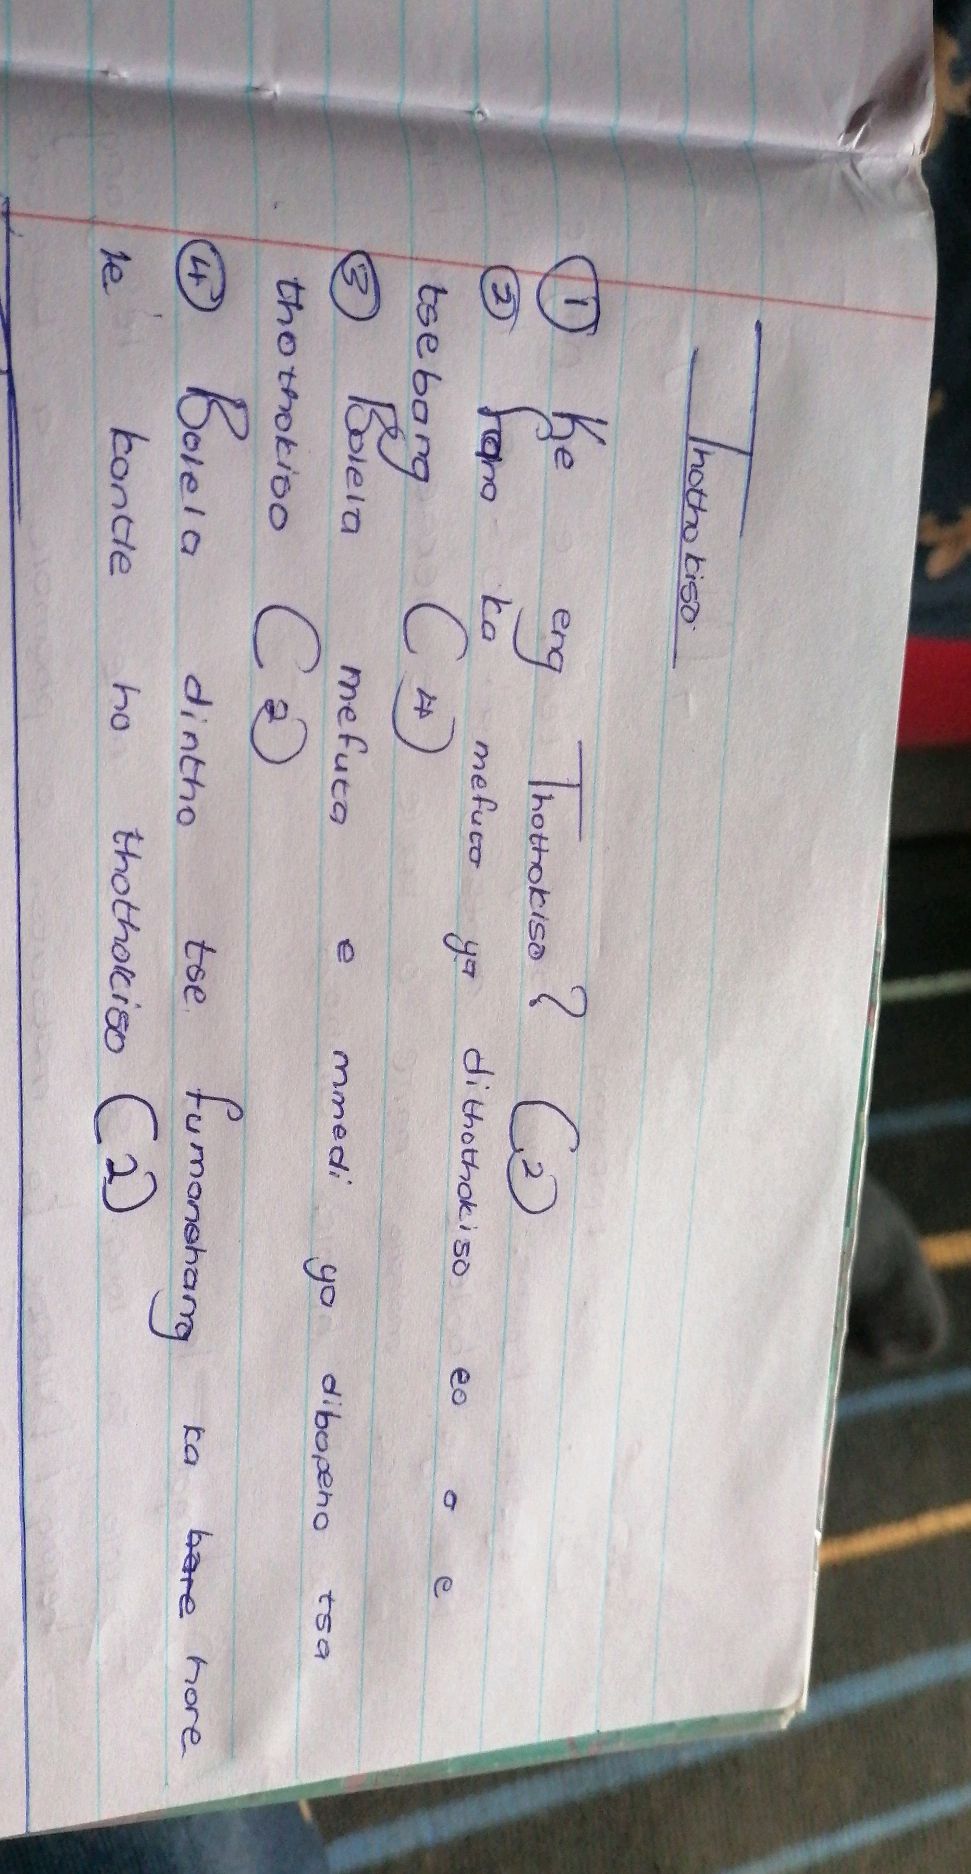 Thothokiso
① Ke eng Thothokiso? (2)
② Fana ka mefuta ya dithothokiso eo o e
tsebang (4)
③ Bolela mefuta e mmedi ya dibopeho tsa
thothokiso (2)
④ Bolela dintho tse fumanehang ka hare hore
le kantle ho thothokiso (2)